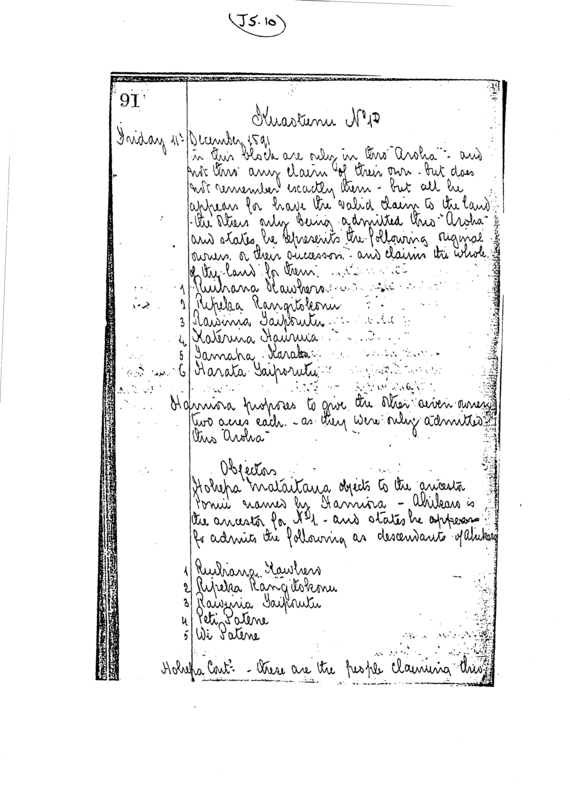 J5.10
91
Kuaotunu No 1D
Friday 11th December 1891
in this block are only in thro "Aroha" - and
not thro' any claim of their own - but does
not remember exactly them - but all he
appears for have the valid claim to the land
- the others only being admitted thro "Aroha"
and states he represents the following original
owners or their successors - and claims the whole
of the land for them.
1 Ruihana Kawhero
2 Ripeka Rangitokonu
3 Rawinia Taiporutu
4 Katerina Hauruia
5 Tamaha Karaka
6 Harata Taiporutu
Hamiora proposes to give the other seven owners
two acres each - as they were only admitted
thro Aroha"
Objectors
Hohepa Mataitaua objects to the ancestor
named by Hamiora - Ahikaro is
the ancestor for No 1 - and states he appears
for admits the following as descendants of Ahikaro
1 Ruihana Kawhero
2 Ripeka Rangitokonu
3 Rawinia Taiporutu
4 Peti Patene
5 Wi Patene
Hohepa Contd - these are the people claiming thro